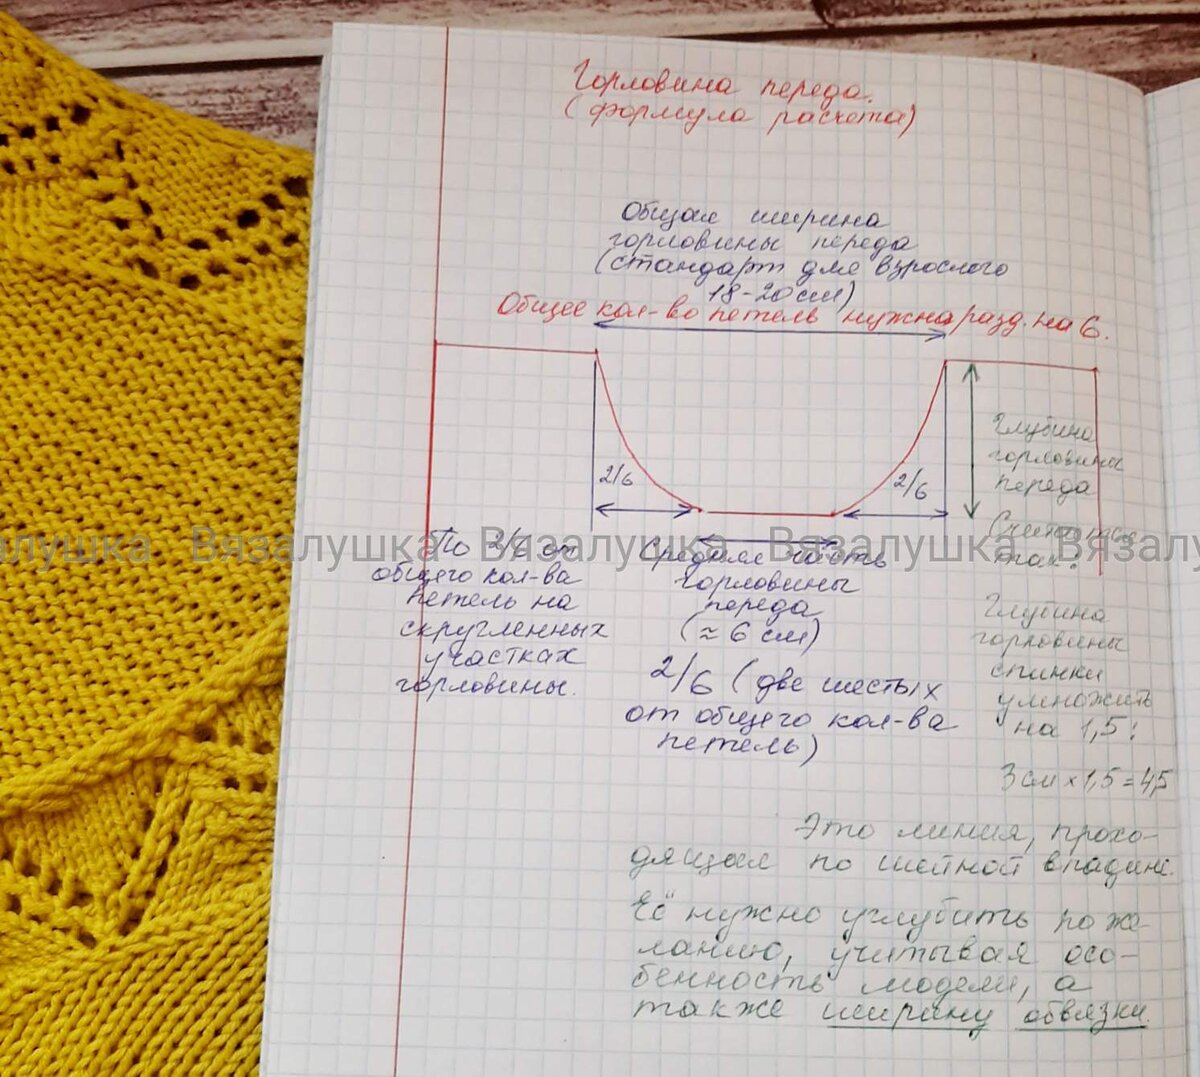 Горловина переда.
(формула расчета)
Общая ширина
горловины переда
(стандарт для взрослого
18-20см)
Общее кол-во петель нужна разд. на 6.
2/6
2/6
Глубина
горловины
переда
(считается
так:
Глубина
горловины
спинки
умножить
на 1,5:
3 см х 1,5 = 4,5
По 2/6 от
общего кол-ва
петель на
скругленных
участках
горловины.
Средняя часть
горловины
переда
(≈ 6 см)
2/6 (две шестых
от общего кол-ва
петель)
Это линия, прохо-
дящая по шейной впадине.
Её нужно углубить по же-
ланию, учитывая осо-
бенность модели, а
также ширину обвязки.
Вязалушка Вязалушка Вязалушка